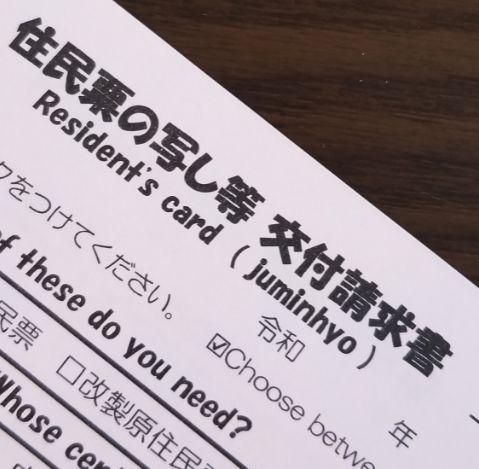 住民票の写し等 交付請求書
Resident's card ( juminhyo )
令和 年
クをつけてください。 ☑Choose betwe
of these do you need?
民票 □改製原住民
Whose cer